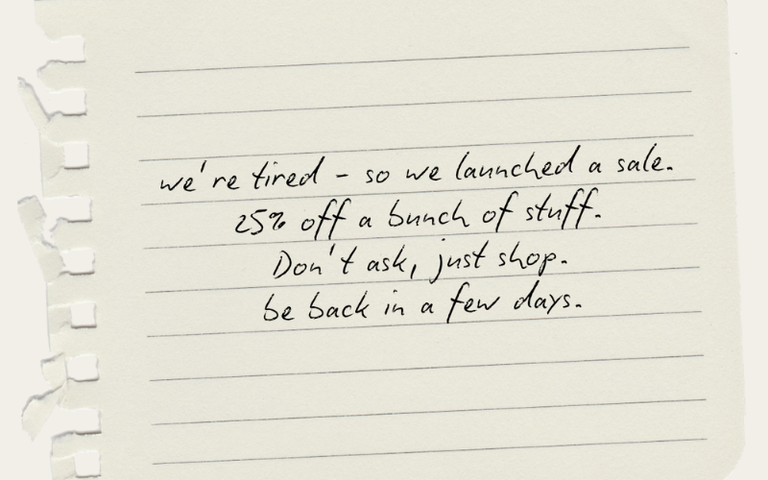 we're tired - so we launched a sale.
25% off a bunch of stuff.
Don't ask, just shop.
be back in a few days.